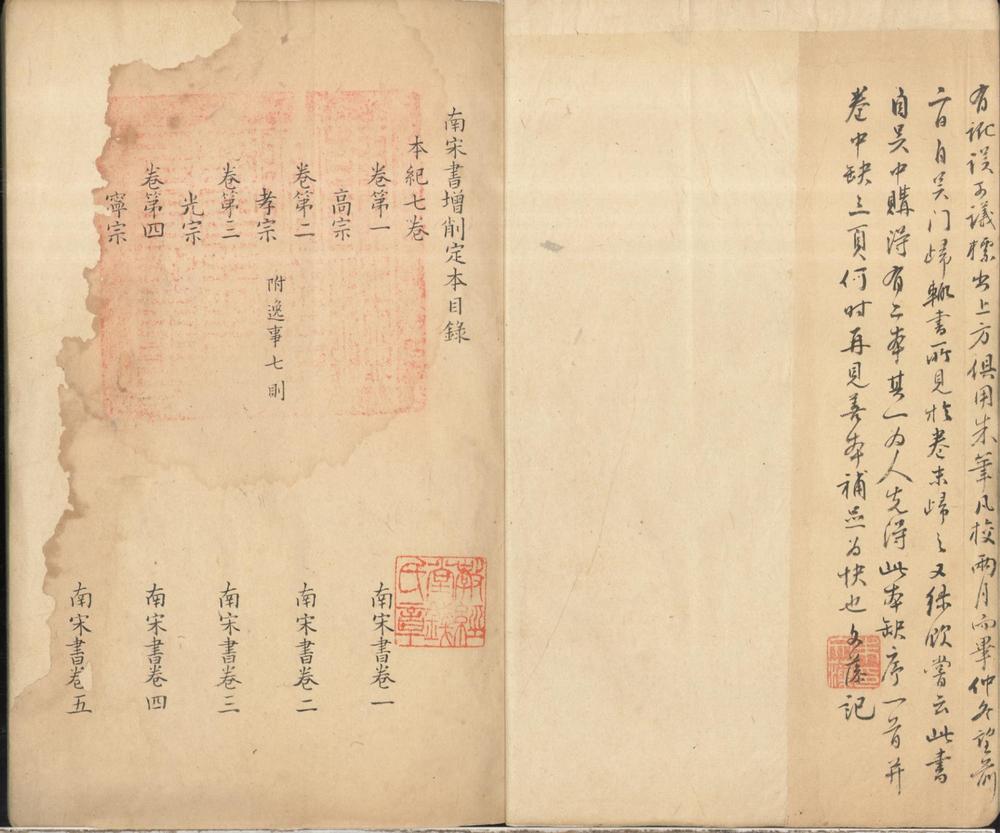 有訛誤可議標出上方俱用朱筆凡校兩月而畢仲冬望前
二日自吴门歸輒書所見於卷末歸之又綠飲嘗云此書
自吴中購得有二本其一为人先得此本缺序一首并
卷中缺三頁何时再見善本補足为快也文藻記
南宋書增削定本目錄
本紀七卷
卷第一
高宗
南宋書卷一
卷第二
孝宗
附逸事七則
南宋書卷二
卷第三
光宗
南宋書卷三
卷第四
寧宗
南宋書卷四
南宋書卷五
敦經堂錢氏章